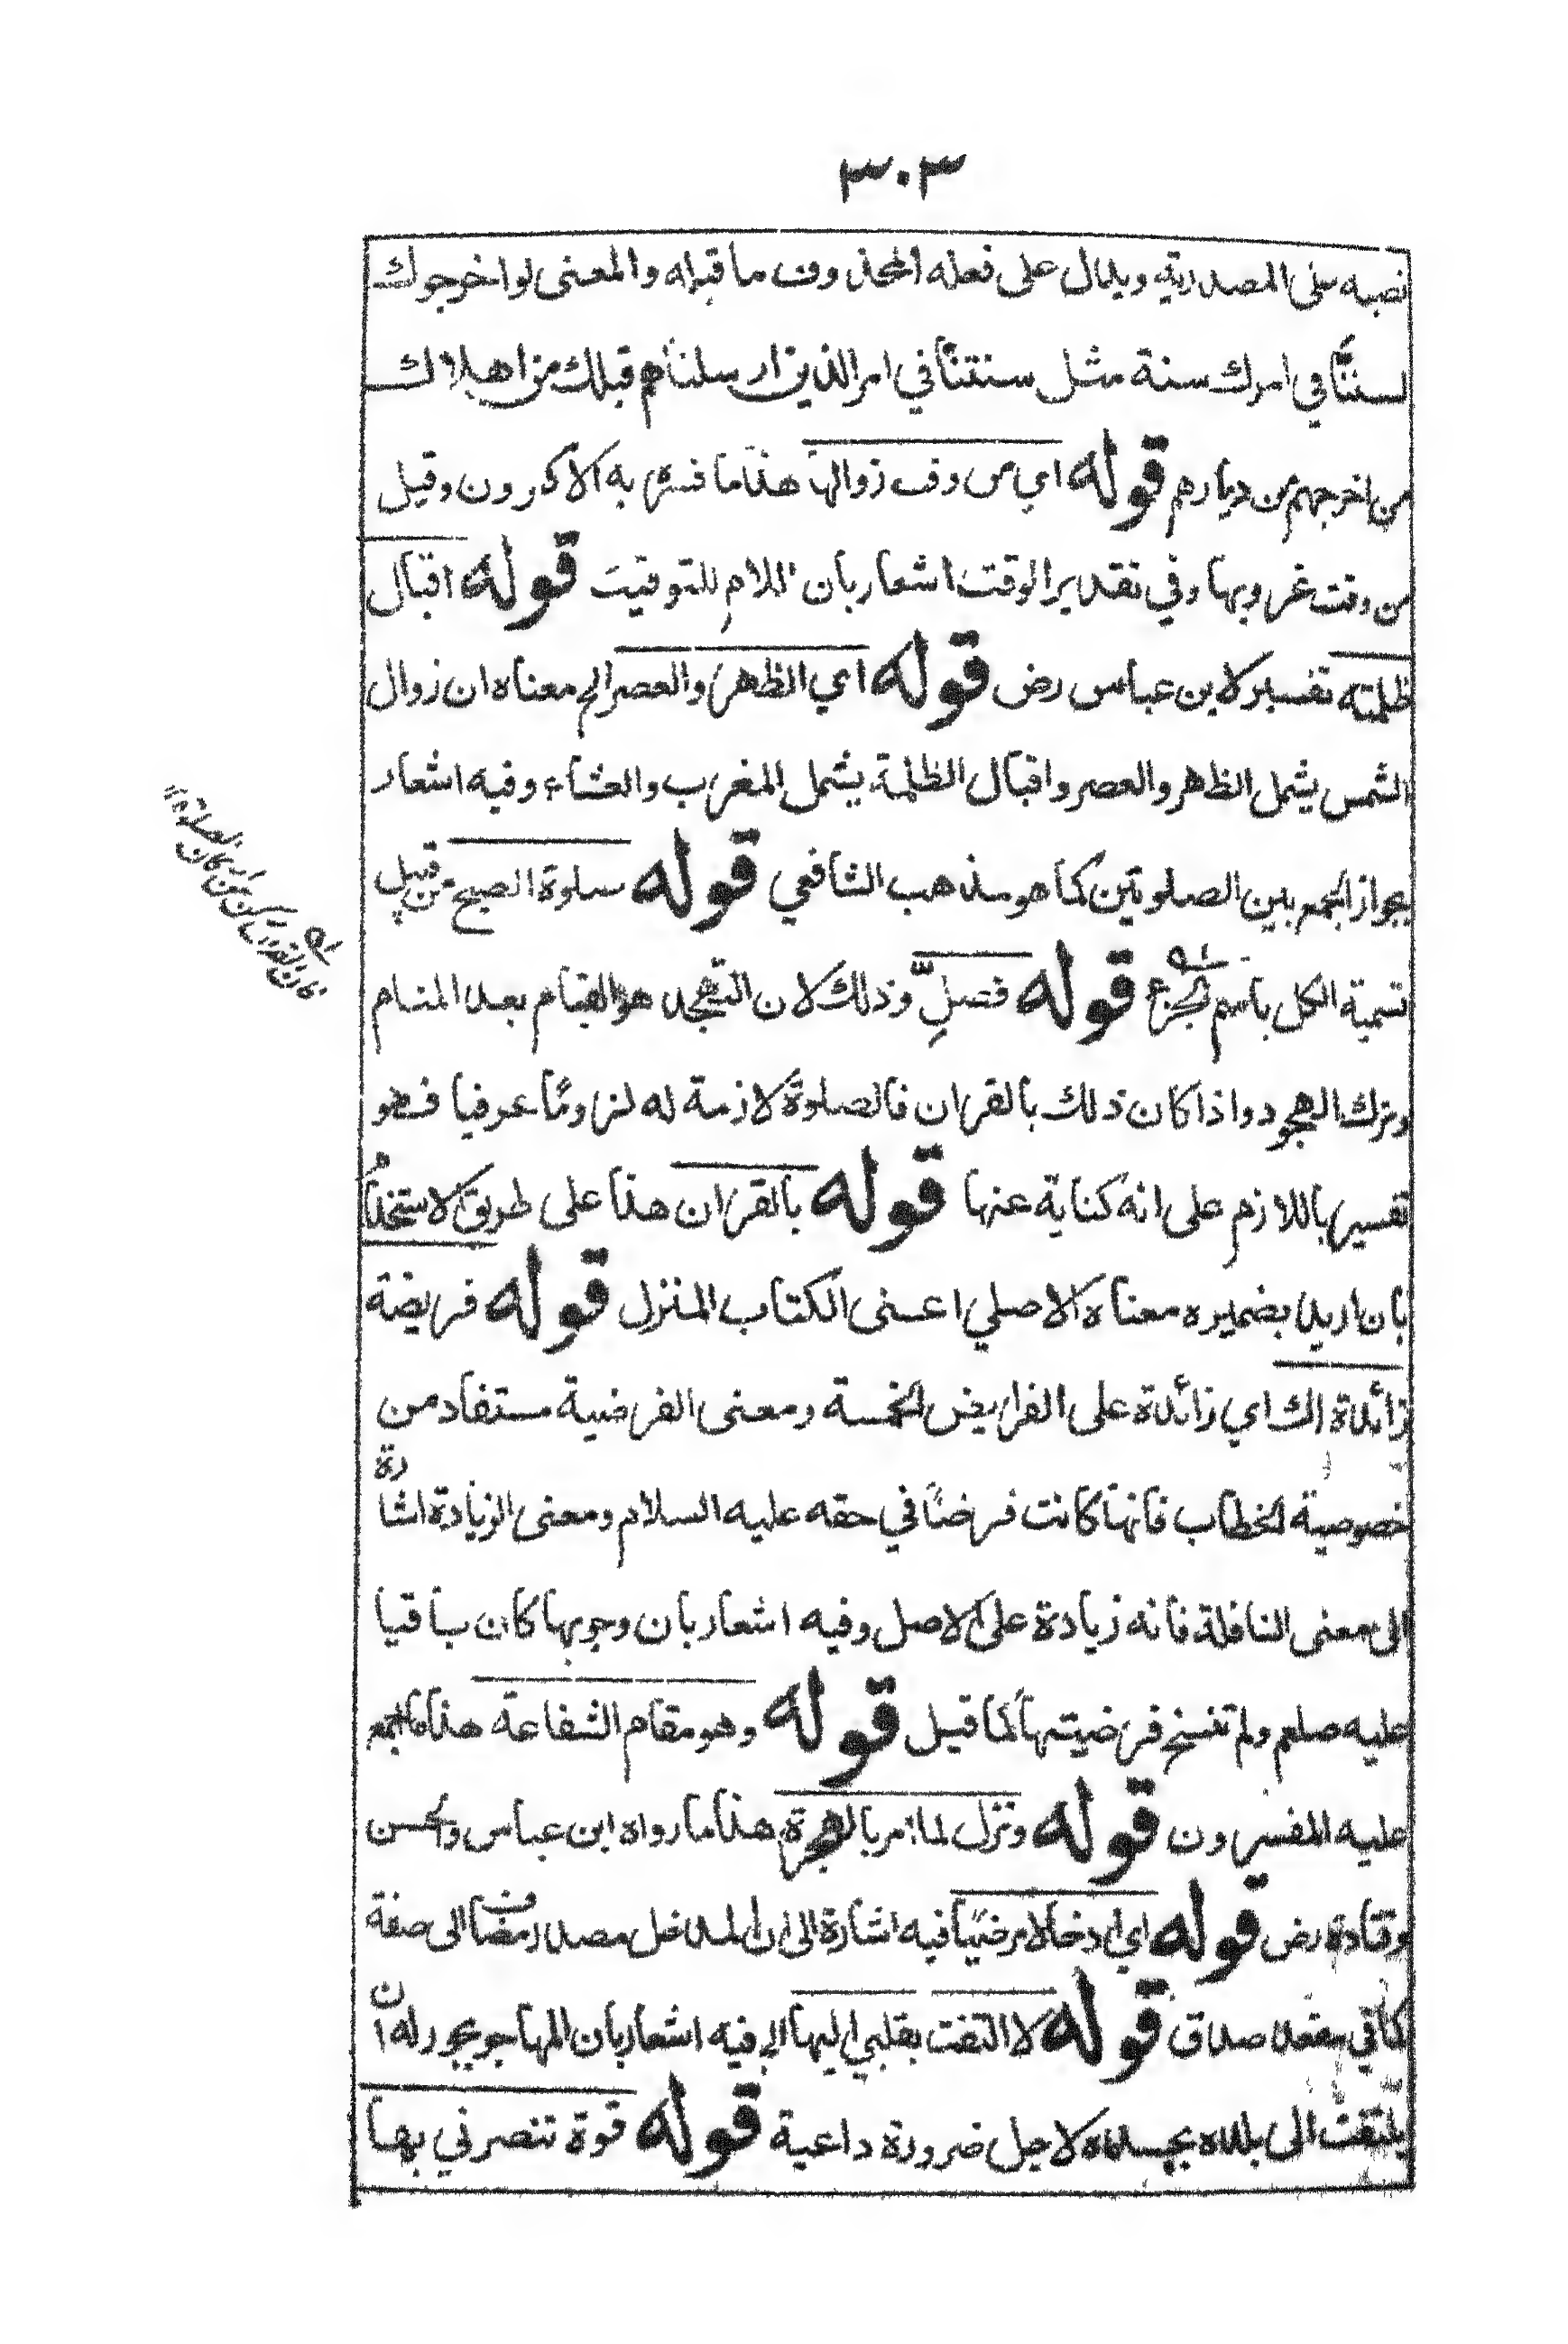 ٣٠٣
نصبه على المصدرية ويدل على فعله المحذوف ما قبله والمعنى لو اخرجوك
لسننّا في امرك سنة مثل سنتنا في امر الذين ارسلناهم قبلك من اهلاك
من اخرجهم من ديارهم قوله اي من وقت زوالها هذا ما فسره به الاكثرون وقيل
من وقت غروبها وفي تقدير الوقت اشعار بان اللام للتوقيت قوله اقبال
ظلمته تفسير لابن عباس رض قوله اي الظهر والعصر الخ معناه ان زوال
الشمس يشمل الظهر والعصر واقبال الظلمة يشمل المغرب والعشاء وفيه اشعار
بجواز الجمع بين الصلوتين كما هو مذهب الشافعي قوله صلوة الصبح من قبيل
تسمية الكل باسم الجزء قوله فصلِّ وذلك لان التهجد هو القيام بعد المنام
وترك الهجود واذا كان ذلك بالقران فالصلوة لازمة له لزوما عرفيا فهو
تفسير باللازم على انه كناية عنها قوله بالقران هذا على طريق الاستخدام
بان اريد بضميره معناه الاصلي اعنى الكتاب المنزل قوله فريضة
زائدة لك اي زائدة على الفرايض الخمسة ومعنى الفرضية مستفاد من
خصوصية الخطاب فانها كانت فرضًا في حقه عليه السلام ومعنى الزيادة اشارة
الى معنى النافلة فانه زيادة على الاصل وفيه اشعار بان وجوبها كان باقيا
عليه صلعم ولم تنسخ فرضيتها كما قيل قوله وهو مقام الشفاعة هذا ما اجمع
عليه المفسرون قوله ونزل لما امر بالهجرة هذا ما رواه ابن عباس والحسن
وقتادة رض قوله اي ادخالا مرضيًا فيه اشارة الى ان المدخل مصدر مضاف الى صفة
كما في مقعد صدق قوله لا التفت بقلبي اليها الخ فيه اشعار بان المهاجر يجوز له ان
يلتفت الى بلده بجسده لاجل ضرورة داعية قوله قوة تنصرني بها
فان القراءة ركن من اركان الصلوة ١٢